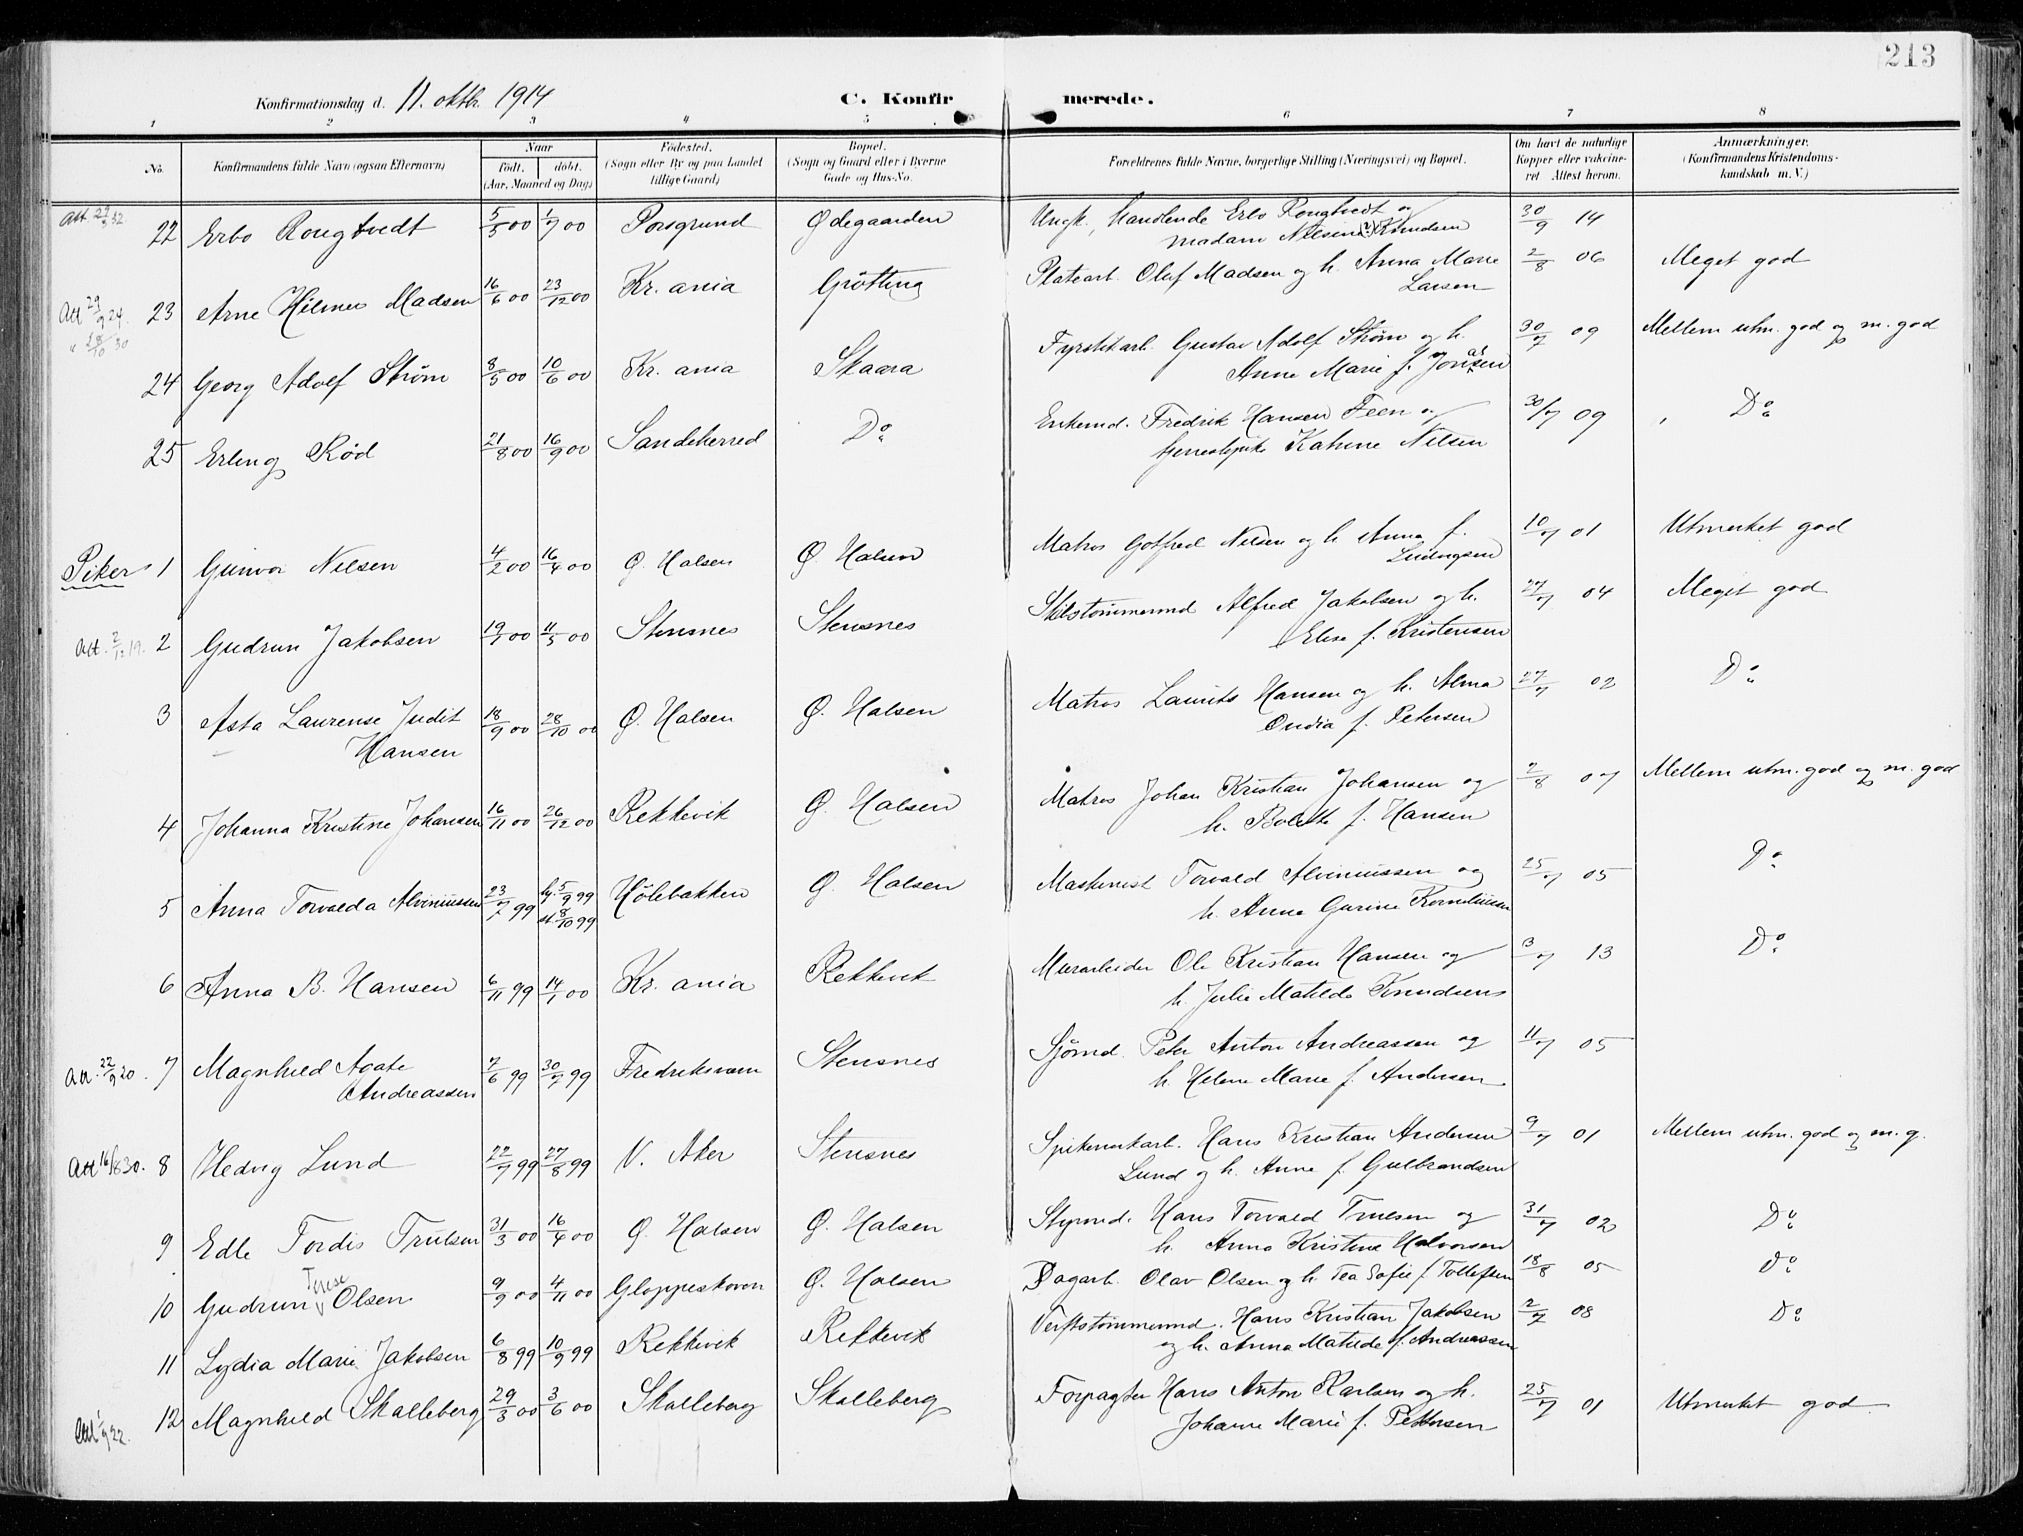 213
Konfirmationsdag d. 11. oktbr. 1914 C. Konfirmerede.
1 2 3 4 5 6 7 8
No. Konfirmandens fulde Navn (ogsaa Efternavn) Naar født, døbt. (Aar, Maaned og Dag) Fødested. (Sogn eller By og paa Landet tillige Gaard) Bopæl. (Sogn og Gaard eller i Byerne Gade og Hus-No. Forældrenes fulde Navne, borgerlige Stilling (Næringsvei) og Bopæl. Om havt de naturlige Kopper eller vakcineret. Attest herom. Anmærkninger. (Konfirmandens Kristendomskundskab m. V.)
22 Erbo Rongtvedt 5/5 00 1/7 00 Porsgrund Ødegaarden Ungk., Handlende Erbo Rongtvedt og 30/9 14
madam Nilsine (?) Knudsen
Att 29/9 24. 28/10 30 23 Arne Hilmer Madsen 16/6 00 23/12 00 Kr.ania Grøtting Platearb. Oluf Madsen og h. Anna Marie 2/8 06 Meget god
Larsen
24 Georg Adolf Strøm 8/5 00 10/6 00 Kr.ania Skaara Fyrstikarb. Gustav Adolf Strøm og h. 30/7 09 Mellem utm. god og m. god
Anne Marie f. Jonassen
25 Erling Rød 21/8 00 16/9 00 Sandeherred Do Enkemd. Fredrik Hansen Feen og 30/7 09 Do
tjenestepike Katrine Nilsen
Piker 1 Gunvor Nilsen 4/2 00 16/4 00 Ø. Halsen Ø. Halsen Matros Gotfred Nilsen og h Anna f. 10/7 01 Utmerket god
Ludvigsen
Att. 2/12 19. 2 Gudrun Jakobsen 19/1 00 11/5 00 Stensnes Stensnes Skibstømmermd Alfred Jakobsen og h. 27/7 04 Meget god
Elise f. Kristensen
3 Asta Laurense Judit 18/9 00 28/10 00 Ø. Halsen Ø. Halsen Matros Laurits Hansen og h. Alma 27/7 02 Do
Hansen Ondia f. Petersen
4 Johanna Kristine Johansen 16/11 00 26/12 00 Rekkevik Ø. Halsen Matros Johan Kristian Johansen og 2/8 07 Mellem utm. god og m. god
h. Bolette f. Hansen
5 Anna Torvalda Alviniussen 23/7 99 hj. 5/9 99 st. 8/10 99 Hølebakken Ø. Halsen Maskinist Torvald Alviniussen og 25/7 05 Do
h. Anna Gurine Korneliussen
6 Anna B. Hansen 6/11 99 14/1 00 Kr.ania Rekkevik Murarbeider Ole Kristian Hansen og 3/7 13 Do
h. Julie Matilde Knudsen
Att. 22/9 20. 7 Magnhild Agate 7/6 99 30/7 99 Fredriksværn Stensnes Sjømd. Peter Anton Andreassen og 11/7 05
Andreassen h. Helene Marie f. Andersen
Att 16/8 30. 8 Hedvig Lund 22/7 99 27/8 99 V. Aker Stensnes Spikerverkarb. Hans Kristian Andersen 9/7 01 Mellem utm. god og m. g.
Lund og h. Anne f. Gulbrandsen
9 Edle Tordis Trulsen 31/3 00 16/4 00 Ø. Halsen Ø. Halsen Styrmd. Hans Torvald Trulsen og 31/7 02 Do
h. Anna Kristine Halvorsen
10 Gudrun Terese Olsen 9/9 00 4/11 00 Gloppeskoven Ø. Halsen Dagarb. Olav Olsen og h. Tea Sofie f. Tollefsen 18/8 05 Do
11 Lydia Marie Jakobsen 6/8 99 10/9 99 Rekkevik Rekkevik Verftstømmermd. Hans Kristian Jakobsen 2/7 08 Do
og h. Anna Matilde f. Andreassen
12 Magnhild Skalleberg 29/3 00 3/6 00 Skalleberg Skalleberg Forpagter Hans Anton Karlsen og h. 25/7 01 Utmerket god
Johanne Marie f. Pettersen